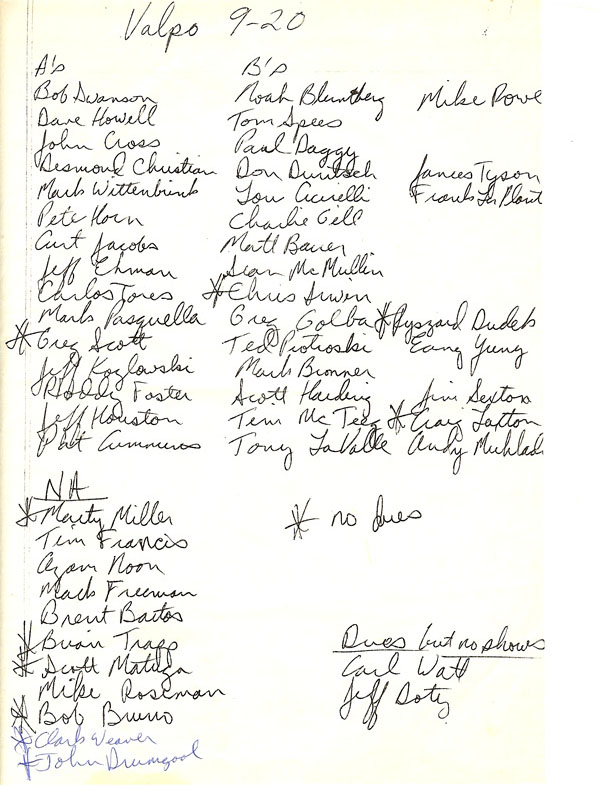 Valpo 9-20
A's B's
Bob Swanson Noah Blumberg Mike Rowe
Dave Howell Tom Spees
John Cross Paul Daggy
Desmond Christian Don James Tyson
Mark Wittenbrink Lou Cicirelli Frank La Plant
Pete Horn Charlie Gill
Curt Jacobs Matt Bauer
Jeff Ehman Sean McMullin
Carlos Tores * Chris
Mark Pasquella Greg Golba * Ryszard Dudek
* Greg Scott Ted Piotroski Eang Yung
Jeff Kozlowski Mark Bronner
Roddy Foster Scott Harding Jim Sexton
Jeff Houston Tim McTeg * Craig Laxton
Pat Cummins Tony LaValle Andy
NA
* Marty Miller * no dues
Tim Francis
Azam Noon
Mark Freeman
Brent Bartos
* Brian Trapp Dues but no shows
* Scott Carl Watt
Mike Roseman Jeff Doty
* Bob Bruno
* Clark Weaver
* John Drumgool